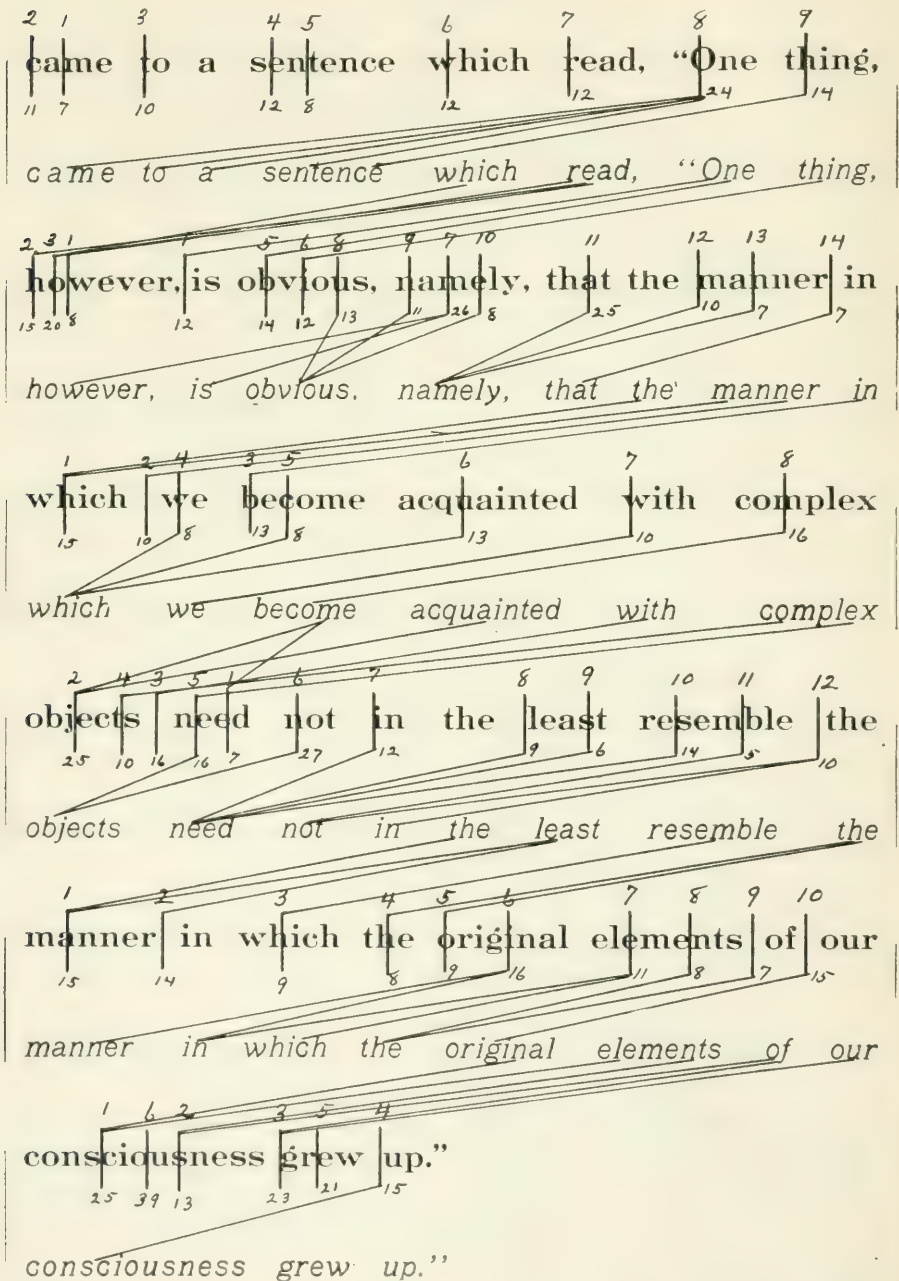 2 1 3 4 5 6 7 8 9
came to a sentence which read, “One thing,
11 7 10 12 8 12 12 24 14
came to a sentence which read, “One thing,
2 3 1 4 5 6 8 9 7 10 11 12 13 14
however, is obvious, namely, that the manner in
15 20 8 12 14 12 13 11 26 8 25 10 7 7
however, is obvious, namely, that the manner in
1 2 4 3 5 6 7 8
which we become acquainted with complex
15 10 8 13 8 13 10 16
which we become acquainted with complex
2 4 3 5 1 6 7 8 9 10 11 12
objects need not in the least resemble the
25 10 16 16 7 27 12 9 6 14 5 10
objects need not in the least resemble the
1 2 3 4 5 6 7 8 9 10
manner in which the original elements of our
15 14 9 8 9 16 11 8 7 15
manner in which the original elements of our
1 6 2 3 5 4
consciousness grew up.”
25 39 13 23 21 15
consciousness grew up.”